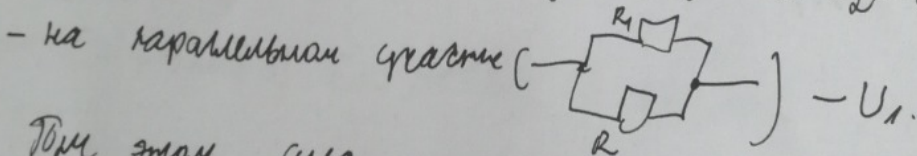 - на параллельном участке ( R₁ R ) - U₁.
При этом